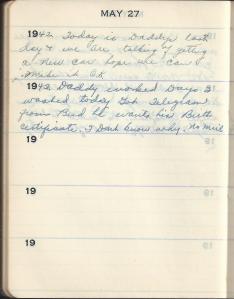 MAY 27
1942 Today is Daddys last
day & we are talking of getting
a new car hope we can
make it OK
1943 Daddy worked Days
washed today Got Telegram
from Bud he wants his Birth
certificate. I Dont know why. No mail
19
19
19